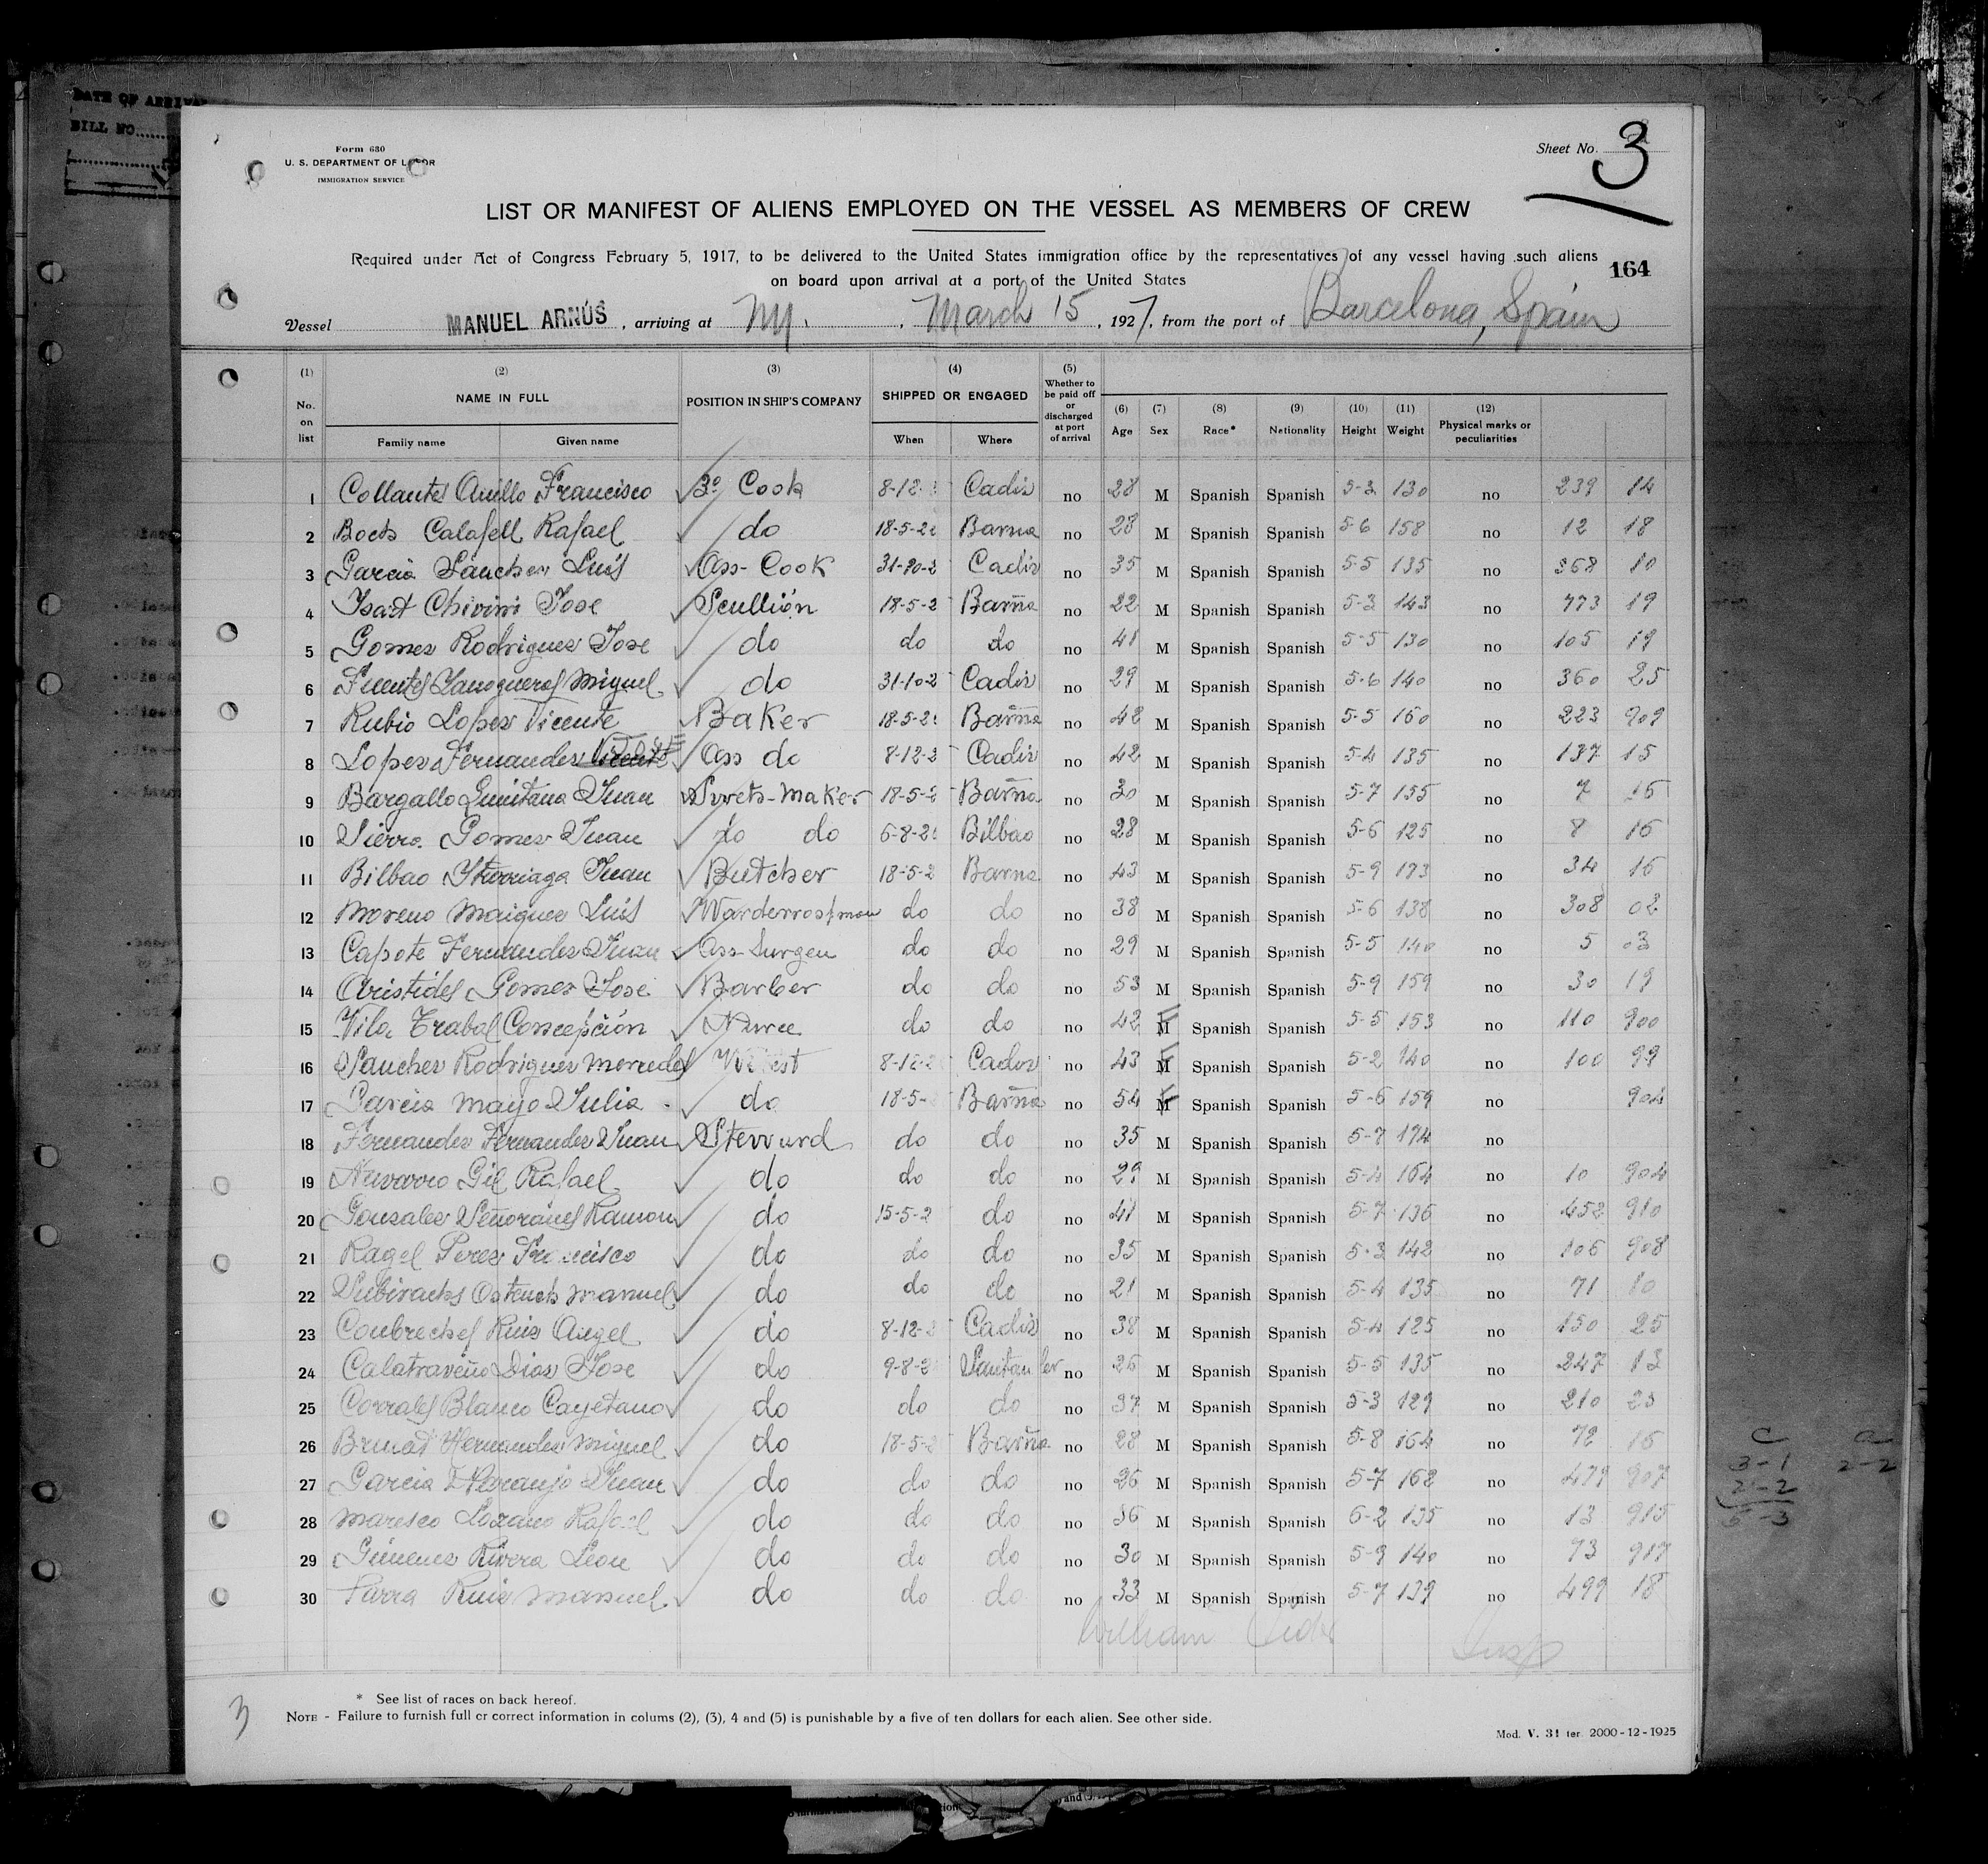 DATE OF ARRIVAL
BILL NO.
Form 680
U. S. DEPARTMENT OF LABOR
IMMIGRATION SERVICE
Sheet No. 3
LIST OR MANIFEST OF ALIENS EMPLOYED ON THE VESSEL AS MEMBERS OF CREW
Required under Act of Congress February 5, 1917, to be delivered to the United States immigration office by the representatives of any vessel having such aliens
on board upon arrival at a port of the United States
164
Vessel MANUEL ARNÚS, arriving at Ny., March 15, 1927, from the port of Barcelona, Spain
(1) No. on list (2) NAME IN FULL Family name Given name (3) POSITION IN SHIP'S COMPANY (4) SHIPPED OR ENGAGED When Where (5) Whether to be paid off or discharged at port of arrival (6) Age (7) Sex (8) Race* (9) Nationality (10) Height (11) Weight (12) Physical marks or peculiarities
1 Collantes Francisco 3º Cook 8-12- Cadiz no 28 M Spanish Spanish 5-3 130 no 239 14
2 Calafell Rafael do 18-5-2 Barna no 28 M Spanish Spanish 5-6 158 no 12 18
3 Garcia Sanchez Luis Ass-Cook Cadiz no 35 M Spanish Spanish 5-5 135 no 368 10
4 Jose Scullión 18-5-2 Barña no 22 M Spanish Spanish 5-3 143 no 773 19
5 Gomez Rodriguez Jose do do do no 41 M Spanish Spanish 5-5 130 no 105 19
6 Fuentes Miguel do 31-10-2 Cadiz no 29 M Spanish Spanish 5-6 140 no 360 25
7 Rubio Lopez Vicente Baker 18-5-2 Barña no 42 M Spanish Spanish 5-5 160 no 223 909
8 Lopez Fernandez JOSE Ass do 8-12-2 Cadiz no 42 M Spanish Spanish 5-4 135 no 137 15
9 Bargallo Quintana Juan Swets-Maker 18-5-2 Barña no 30 M Spanish Spanish 5-7 155 no 7 16
10 Sierra Gomez Juan do do 6-8-2 Bilbao no 28 M Spanish Spanish 5-6 125 no 8 16
11 Bilbao Iturriaga Juan Butcher 18-5-2 Barna no 43 M Spanish Spanish 5-9 173 no 34 16
12 Moreno Luis do do no 38 M Spanish Spanish 5-6 138 no 308 02
13 Capote Fernandez Juan Ass-Surgen do do no 29 M Spanish Spanish 5-5 140 no 5 03
14 Aristides Gomez Jose Barber do do no 53 M Spanish Spanish 5-9 159 no 30 19
15 Vila Trabal Concepción Nurce do do no 42 F Spanish Spanish 5-5 153 no 110 900
16 Sanchez Rodriguez Mercedes 8-12-2 Cadiz no 43 F Spanish Spanish 5-2 140 no 100 99
17 Garcia Mayo Julia do 18-5- Barña no 54 F Spanish Spanish 5-6 159 no 904
18 Fernandez Fernandez Juan Stewurd do do no 35 M Spanish Spanish 5-7 174 no
19 Navarro Gil Rafael do do do no 29 M Spanish Spanish 5-4 164 no 10 904
20 Gonzalez Señorans Ramon do 15-5-2 do no 41 M Spanish Spanish 5-7 136 no 452 910
21 Ragel Perez Francisco do do do no 35 M Spanish Spanish 5-3 142 no 106 908
22 Subirachs Manuel do do do no 21 M Spanish Spanish 5-4 135 no 71 10
23 Ruiz Angel do 8-12-2 Cadiz no 38 M Spanish Spanish 5-4 125 no 150 25
24 Calatraveño Diaz Jose do 9-8-2 Santander no 26 M Spanish Spanish 5-5 135 no 247 13
25 Corrales Blanco Cayetano do do do no 37 M Spanish Spanish 5-3 129 no 210 23
26 Hernandez Miguel do 18-5-2 Barña no 28 M Spanish Spanish 5-8 164 no 72 16
27 Garcia Naranjo Juan do do do no 26 M Spanish Spanish 5-7 162 no 479 907
28 Lozano Rafael do do do no 36 M Spanish Spanish 6-2 135 no 13 915
29 Gimenez Rivera Leon do do do no 30 M Spanish Spanish 5-9 140 no 73 917
30 Parra Ruiz Manuel do do do no 33 M Spanish Spanish 5-7 139 no 499 18
William Insp
* See list of races on back hereof.
NOTE - Failure to furnish full or correct information in colums (2), (3), 4 and (5) is punishable by a five of ten dollars for each alien. See other side.
3
Mod. V. 31 ter. 2000-12-1925